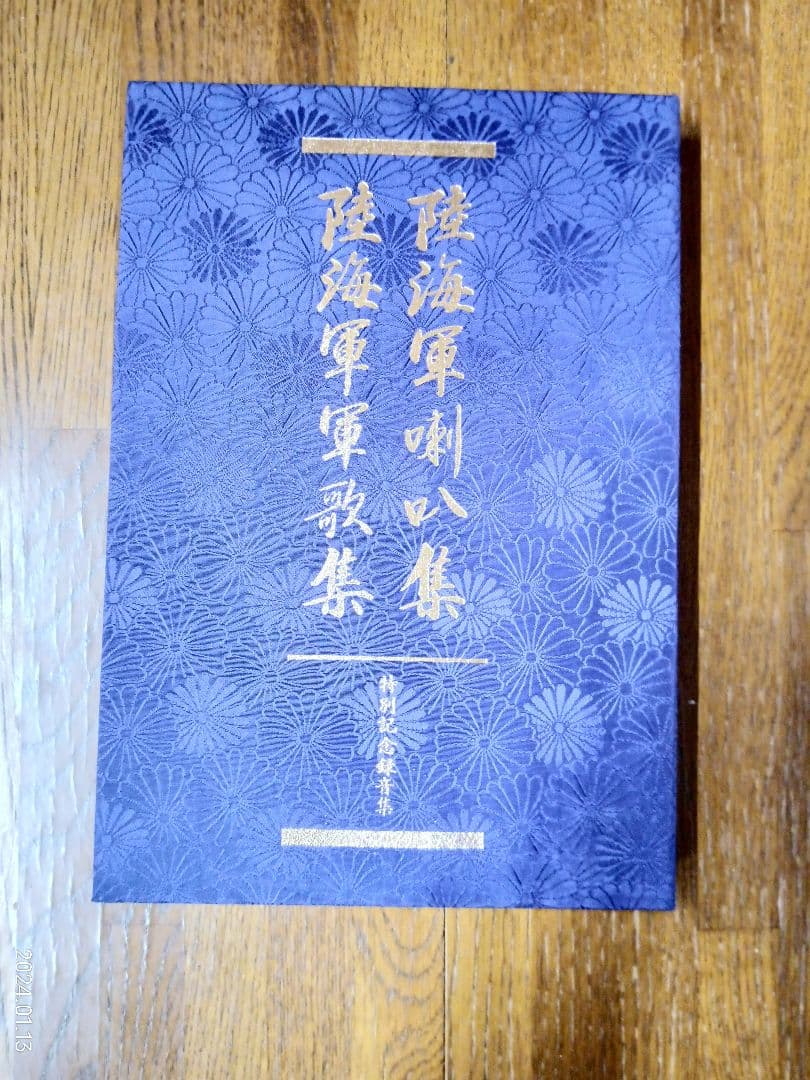 陸海軍喇叭集
陸海軍軍歌集
特別記念録音集
2024.01.13